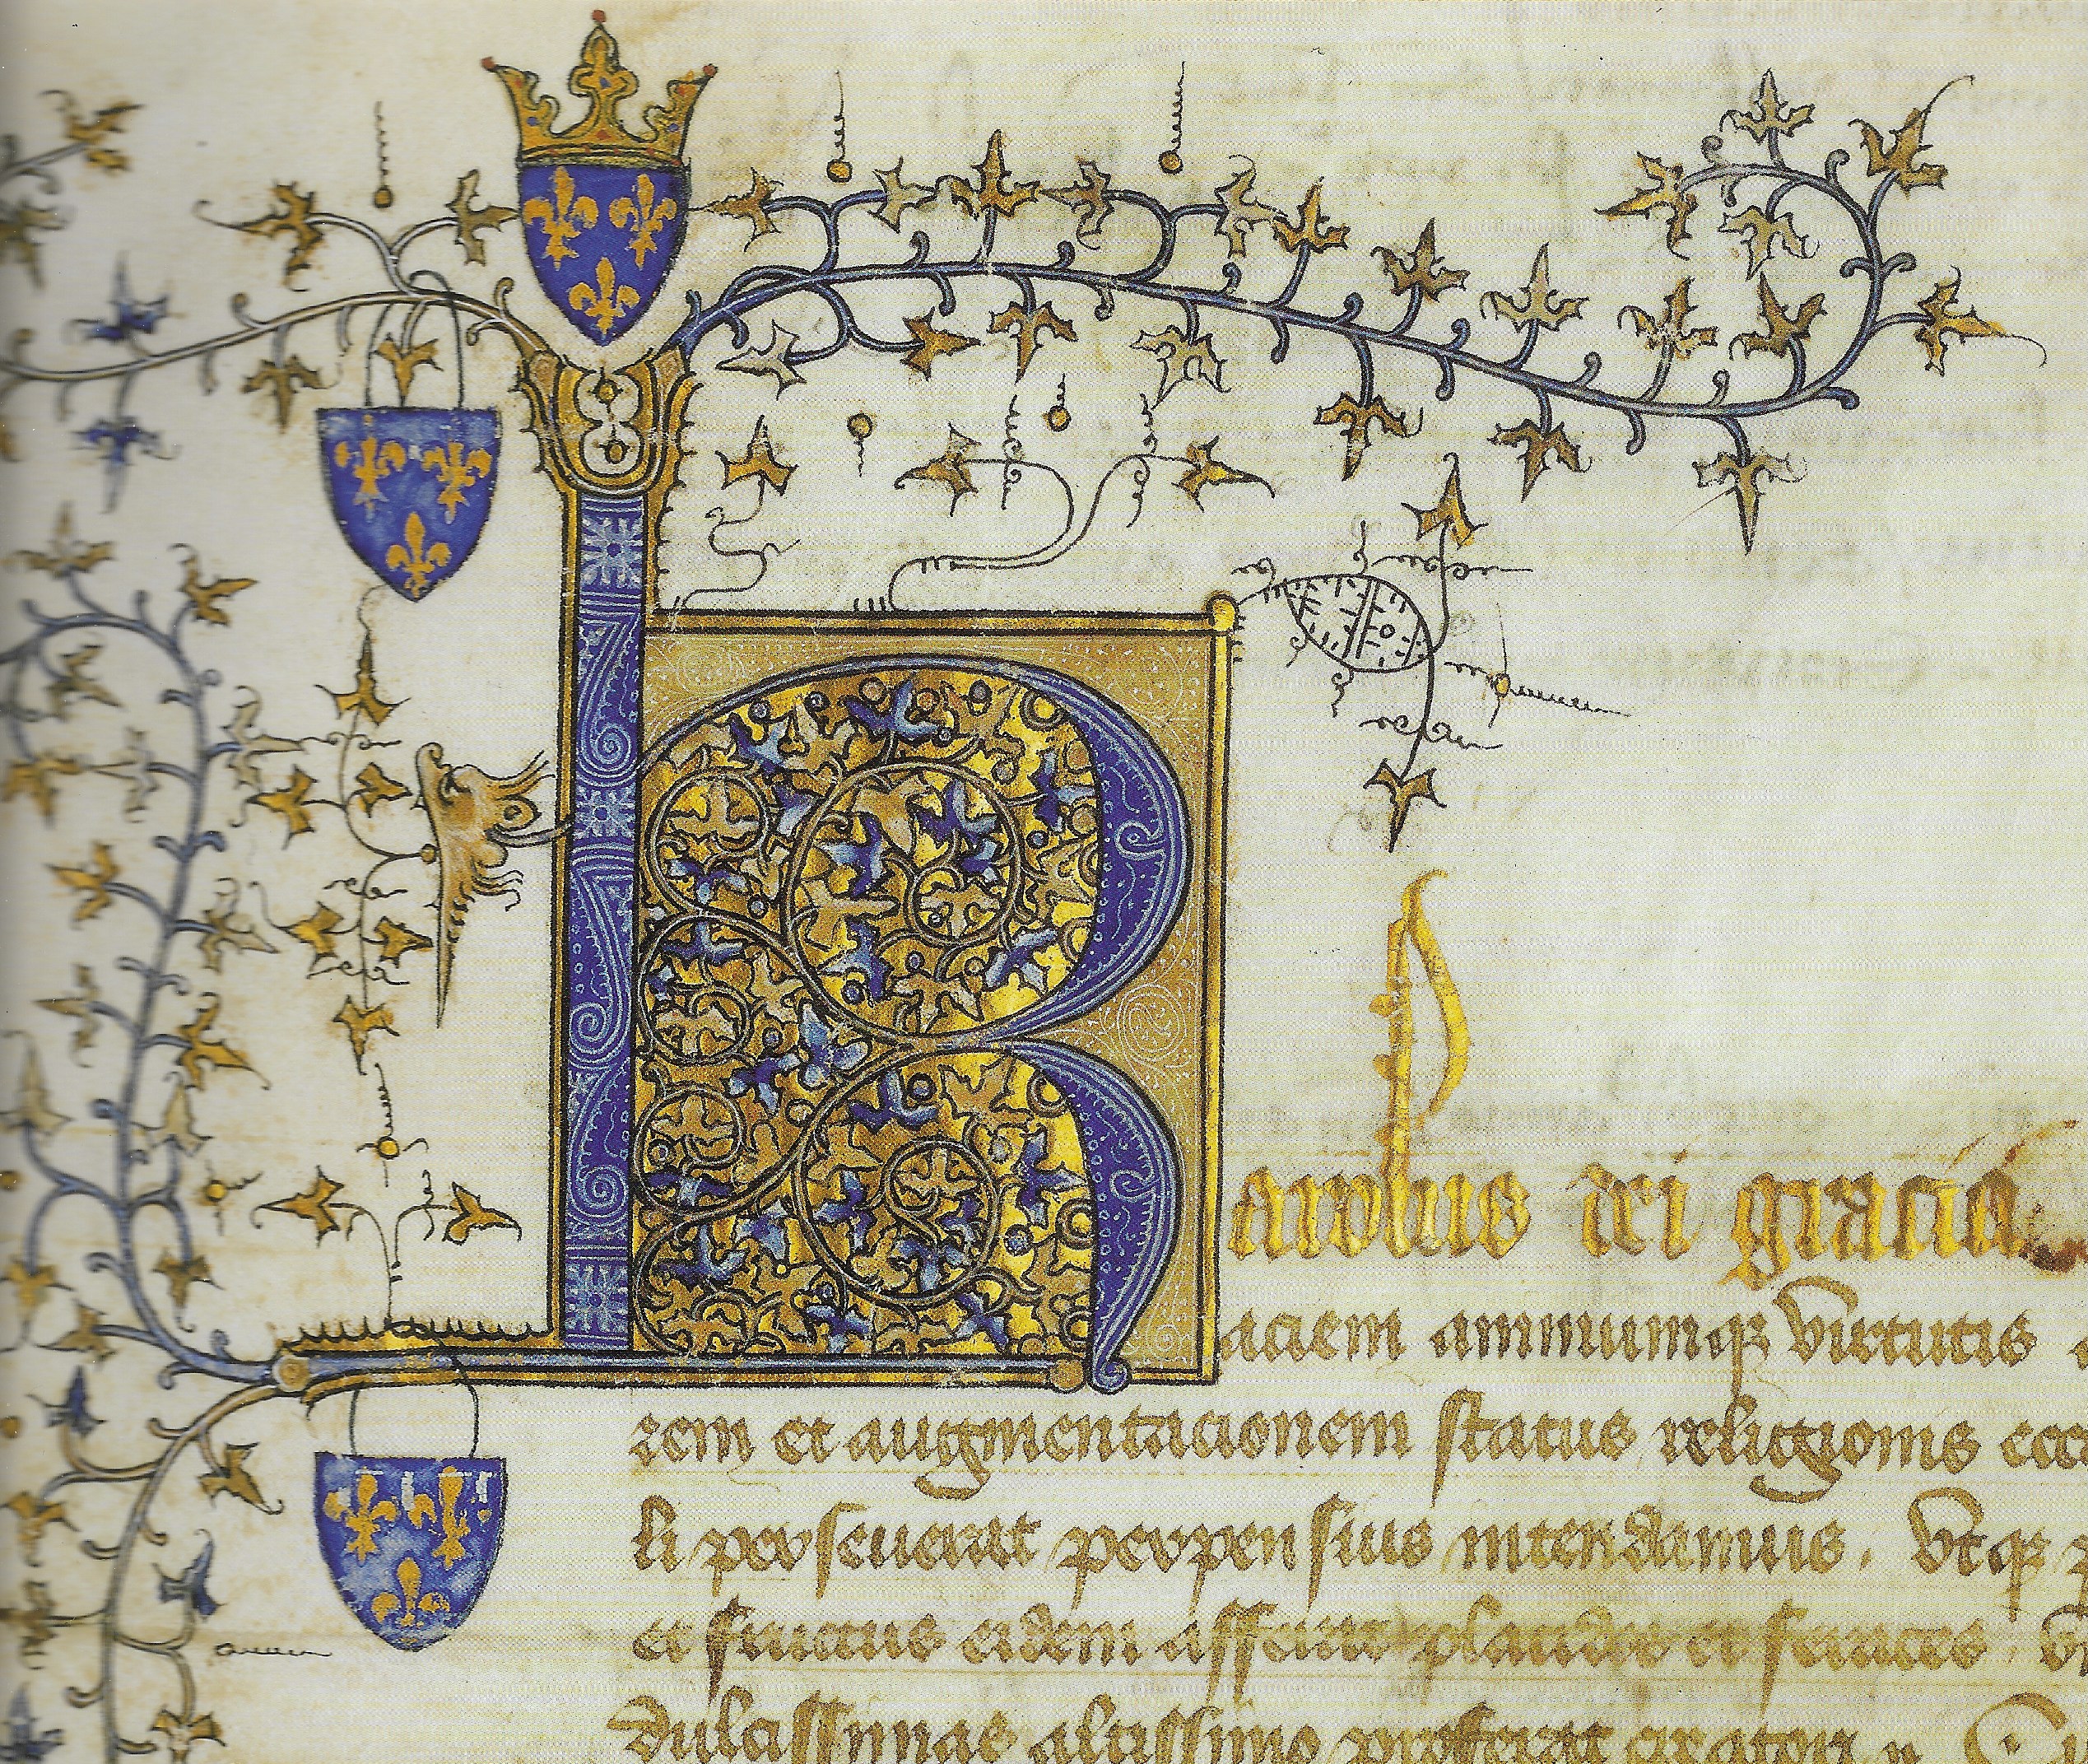 Karolus dei gracia
aciem animumqꝫ virtutis
rem et augmentacionem status religionis
li perseuerat perpensius intendamus. Vtqꝫ
et fructus eidem afferat et feraces
dulcissimae altissimo proferat